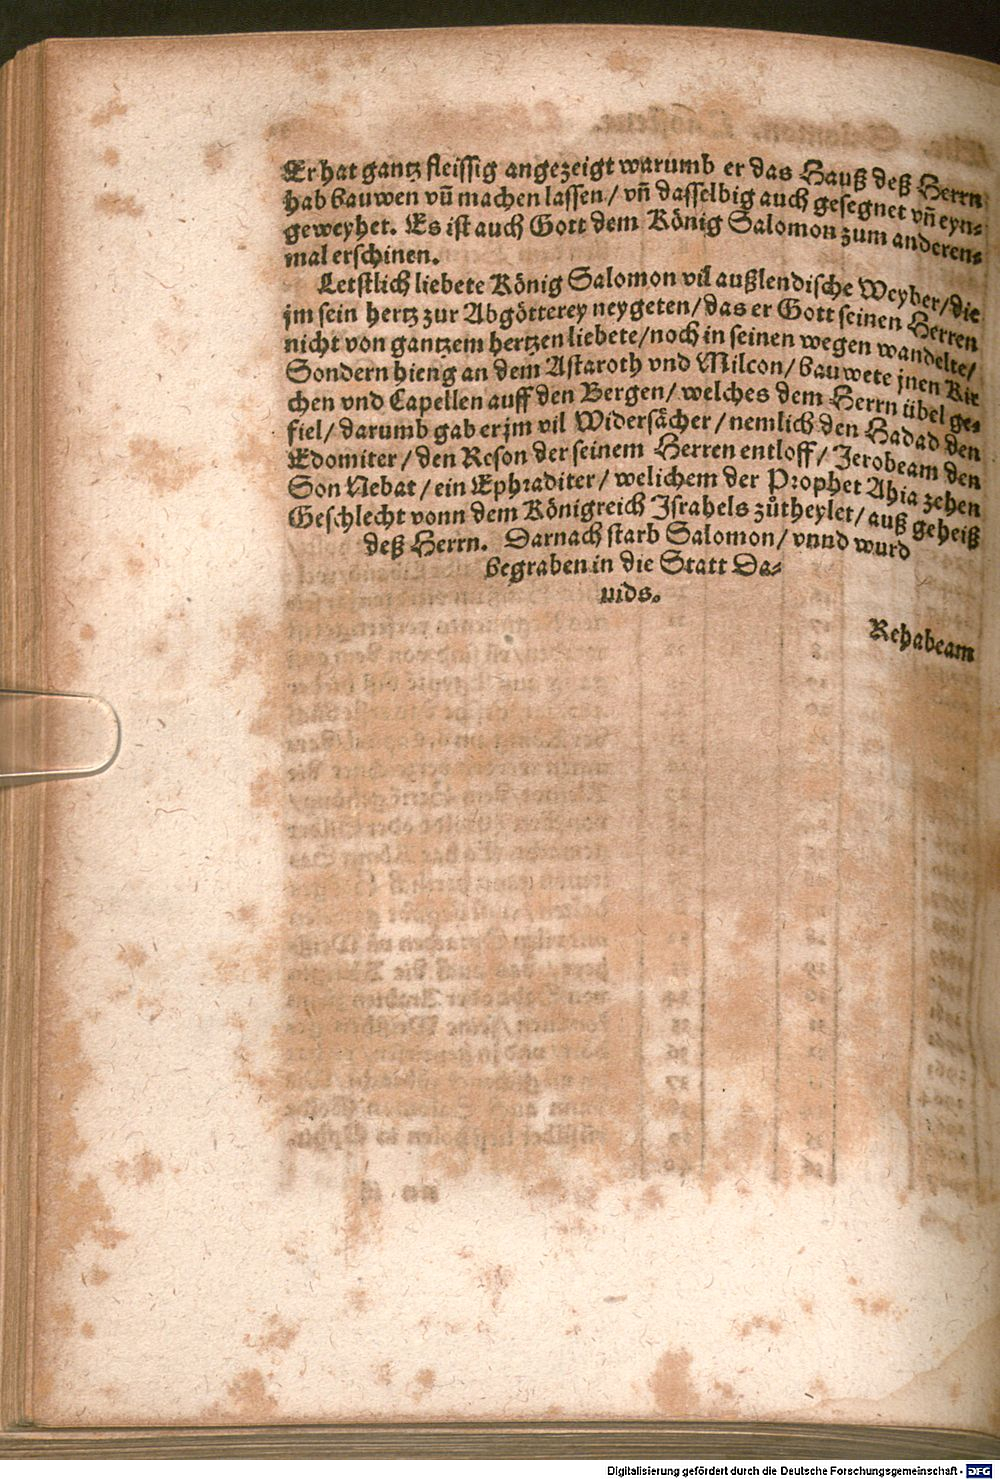 Er hat gantz fleissig angezeigt warumb er das Hauß deß Herrn
hab bauwen vñ machen lassen / vñ dasselbig auch gesegnet vñ eyn-
geweyhet. Es ist auch Gott dem König Salomon zum anderen-
mal erschinen.
Letstlich liebete König Salomon vil außlendische Weyber / die
jm sein hertz zur Abgötterey neygeten / das er Gott seinen Herren
nicht von gantzem hertzen liebete / noch in seinen wegen wandelte /
Sondern hieng an dem Astaroth vnd Milcon / bauwete jnen Kir
chen vnd Capellen auff den Bergen / welches dem Herrn übel ge-
fiel / darumb gab er jm vil Widersächer / nemlich den Hadad den
Edomiter / den Reson der seinem Herren entloff / Jerobeam den
Son Nebat / ein Ephraditer / welichem der Prophet Ahia zehen
Geschlecht vonn dem Königreich Israhels zůtheylet / auß geheiß
deß Herrn. Darnach starb Salomon / vnnd wurd
begraben in die Statt Da-
uids.
Rehabeam
Digitalisierung gefördert durch die Deutsche Forschungsgemeinschaft - DFG